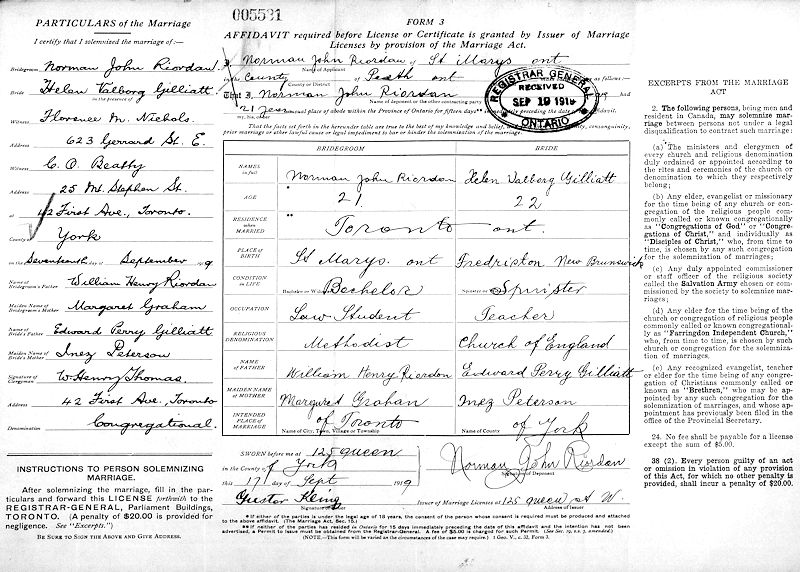 005531
PARTICULARS of the Marriage
I certify that I solemnized the marriage of:—
Bridegroom Norman John Riordan
Bride Helen Valborg Gilliatt
in the presence of
Witness Florence M. Nichols
Address 623 Gerrard St. E.
Witness C. A. Beatty
Address 25 Mt. Stephen St.
at 42 First Ave., Toronto.
County of York
on the Seventeenth day of September 1919
Name of Bridegroom's Father William Henry Riordan
Maiden Name of Bridegroom's Mother Margaret Graham
Name of Bride's Father Edward Perry Gilliatt
Maiden Name of Bride's Mother Inez Peterson
Signature of Clergyman W. Henry Thomas.
Address 42 First Ave., Toronto
Denomination Congregational.
INSTRUCTIONS TO PERSON SOLEMNIZING
MARRIAGE.
After solemnizing the marriage, fill in the par-
ticulars and forward this LICENSE forthwith to the
REGISTRAR-GENERAL, Parliament Buildings,
TORONTO. (A penalty of $20.00 is provided for
negligence. See "Excerpts.")
BE SURE TO SIGN THE ABOVE AND GIVE ADDRESS.
FORM 3
AFFIDAVIT required before License or Certificate is granted by Issuer of Marriage
Licenses by provision of the Marriage Act.
I, Norman John Riordan of St Marys ont
Name of Applicant
in the County of Perth ont as follows:—
County or District
That I, Norman John Riordan and had
Name of deponent or the other contracting party
21 years usual place of abode within the Province of Ontario for fifteen days** immediately preceding the date affidavit.
my, his, her
That the facts set forth in the hereunder table are true to the best of my knowledge and belief, consanguinity,
prior marriage or other lawful cause or legal impediment to bar or hinder the solemnization of the marriage.
REGISTRAR GENERAL
RECEIVED
SEP 19 1919
ONTARIO
BRIDEGROOM BRIDE
NAMES in full Norman John Riordan Helen Valborg Gilliatt
AGE 21 22
RESIDENCE when MARRIED Toronto ont.
PLACE OF BIRTH St Marys ont Fredricton New Brunswick
CONDITION IN LIFE Bachelor or Widower Bechelor Spinster or Widow Spinister
OCCUPATION Law Student Teacher
RELIGIOUS DENOMINATION Methodist Church of England
NAME OF FATHER William Henry Riordon Eedward Perry Gilliatt
MAIDEN NAME OF MOTHER Margaret Grahan Inez Peterson
INTENDED PLACE OF MARRIAGE of Toronto of York
Name of City, Town, Village or Township Name of County
SWORN before me at 125 queen
in the County of York
this 17 day of Sept 1919
Norman John Riordan
Signature of Deponent
Issuer of Marriage Licenses at 125 queen st W.
Address of Issuer
*If either of the parties is under the legal age of 18 years, the consent of the person whose consent is required must be produced and attached
to the above affidavit. (The Marriage Act, Sec. 15.)
**If neither of the parties has resided in Ontario for 15 days immediately preceding the date of this affidavit and the intention has not been
advertised, a Permit to Issue must be obtained from the Registrar-General. A fee of $5.00 is charged for such Permit.
(NOTE.—This form will be varied as the circumstances of the case may require.) 1 Geo. V., c. 32, Form 3.
EXCERPTS FROM THE MARRIAGE
ACT
2. The following persons, being men and
resident in Canada, may solemnize mar-
riage between persons not under a legal
disqualification to contract such marriage:
(a) The ministers and clergymen of
every church and religious denomination
duly ordained or appointed according to
the rites and ceremonies of the church or
denomination to which they respectively
belong;
(b) Any elder, evangelist or missionary
for the time being of any church or con-
gregation of the religious people com-
monly called or known congregationally
as "Congregations of God" or "Congre-
gations of Christ," and individually as
"Disciples of Christ," who, from time to
time, is chosen by any such congregation
for the solemnization of marriages;
(c) Any duly appointed commissioner
or staff officer of the religious society
called the Salvation Army chosen or com-
missioned by the society to solemnize mar-
riages;
(d) Any elder for the time being of the
church or congregation of religious people
commonly called or known congregational-
ly as "Farringdon Independent Church,"
who, from time to time, is chosen by such
church or congregation for the solemniza-
tion of marriages,
(e) Any recognized evangelist, teacher
or elder for the time being of any congre-
gation of Christians commonly called or
known as "Brethren," who may be ap-
pointed by any such congregation for the
solemnization of marriages, and whose ap-
pointment has previously been filed in the
office of the Provincial Secretary.
24. No fee shall be payable for a license
except the sum of $5.00.
38 (2). Every person guilty of an act
or omission in violation of any provision
of this Act, for which no other penalty is
provided, shall incur a penalty of $20.00.